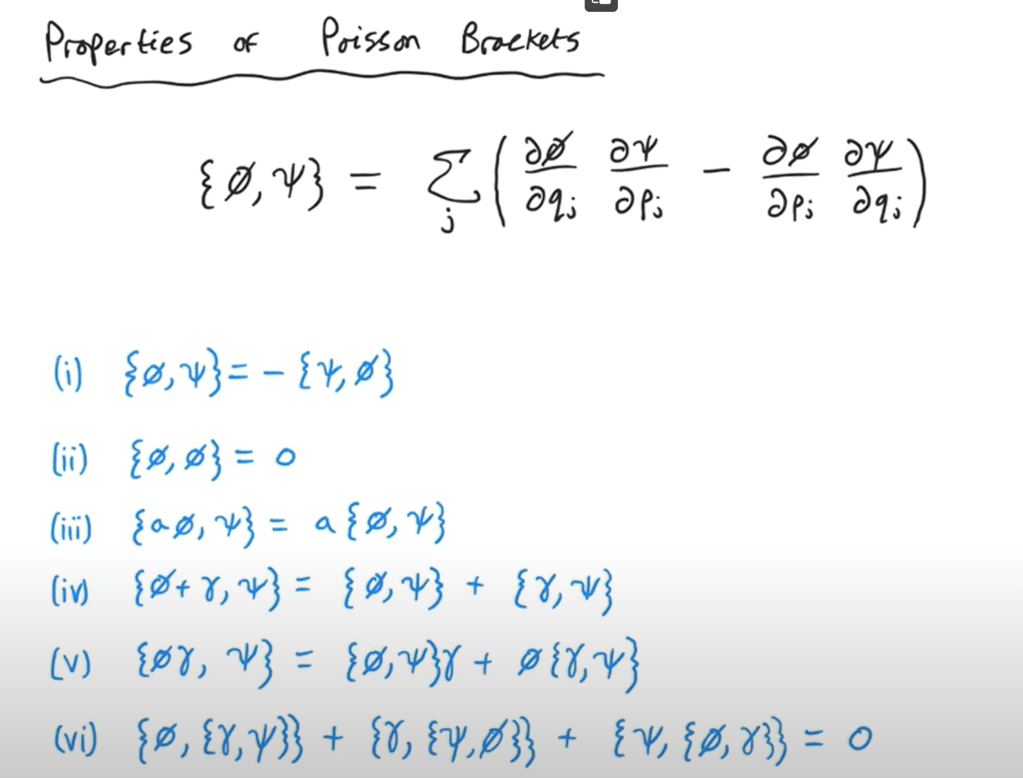 Properties of Poisson Brackets
{ø, ψ} = Σ_j ( ∂ø/∂q_j ∂ψ/∂p_j − ∂ø/∂p_j ∂ψ/∂q_j )
(i) {ø, ψ} = − {ψ, ø}
(ii) {ø, ø} = 0
(iii) {aø, ψ} = a {ø, ψ}
(iv) {ø + γ, ψ} = {ø, ψ} + {γ, ψ}
(v) {øγ, ψ} = {ø, ψ}γ + ø{γ, ψ}
(vi) {ø, {γ, ψ}} + {γ, {ψ, ø}} + {ψ, {ø, γ}} = 0